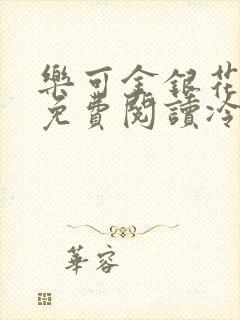 樂可金銀花
免費閱讀冷
華容